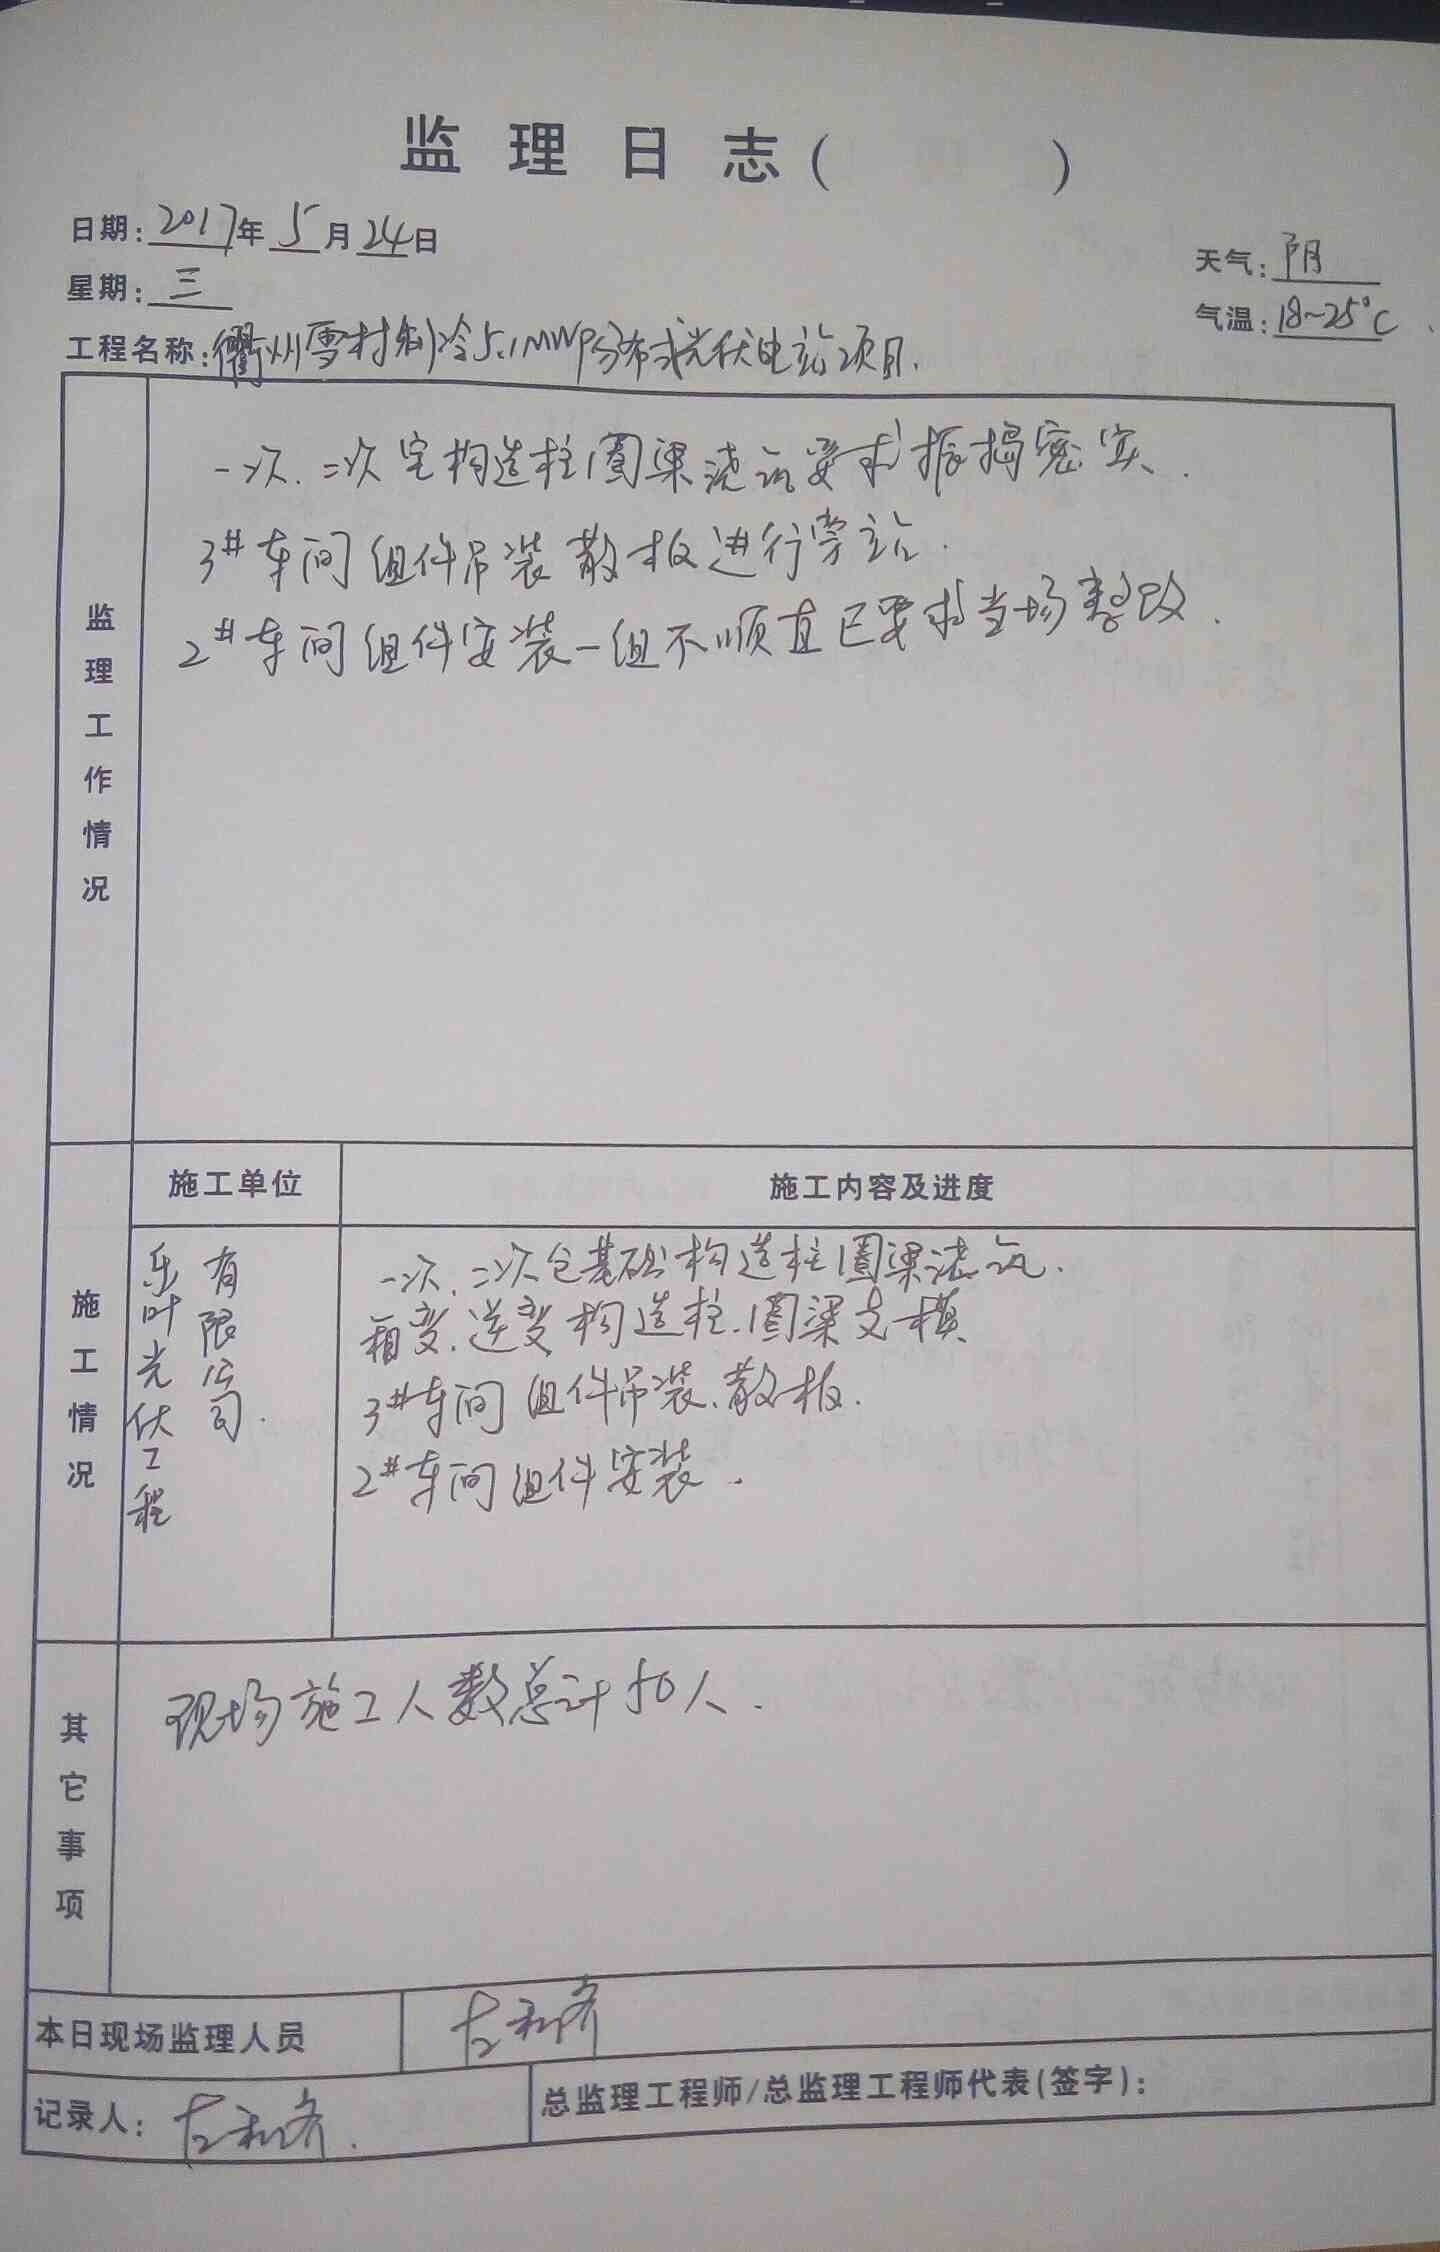 监理日志（ ）
日期：2017年5月24日
天气：阴
星期：三
气温：18~25℃
工程名称：衢州雪村制冷5.1MWP分布式光伏电站项目.
监理工作情况
一次.二次仓构造柱圈梁浇筑要求振捣密实.
3#车间组件吊装散板进行旁站.
2#车间组件安装一组不顺直已要求当场整改.
施工情况
施工单位
施工内容及进度
乐叶光伏工程
有限公司.
一次.二次仓基础构造柱圈梁浇筑.
箱变.逆变构造柱.圈梁支模
3#车间组件吊装、散板.
2#车间组件安装.
其它事项
现场施工人数总计50人.
本日现场监理人员
记录人：
总监理工程师/总监理工程师代表(签字)：